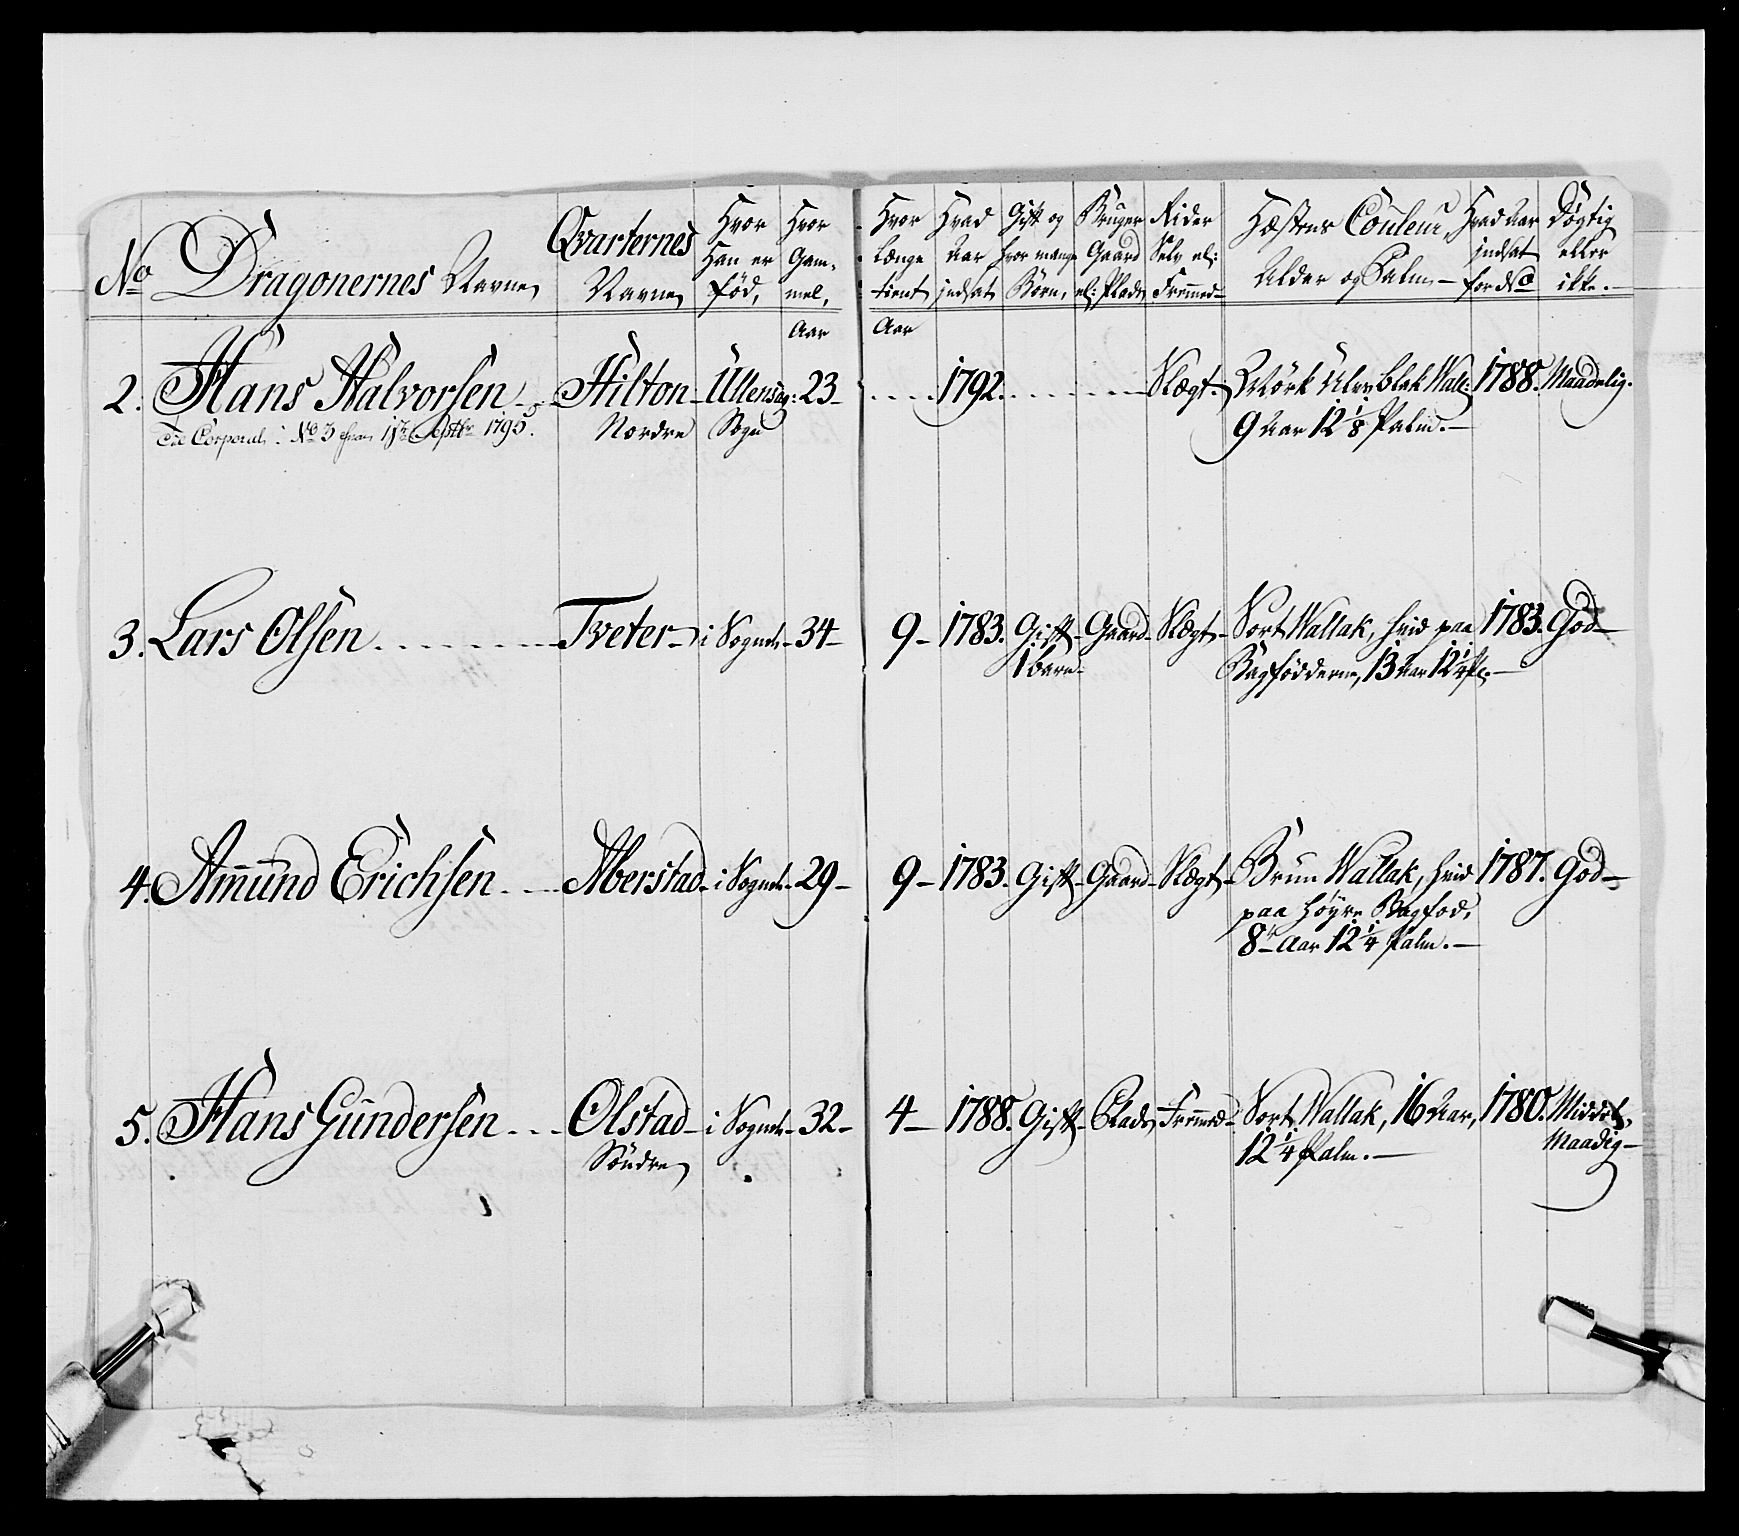 No Dragonernes Navne, Qvarternes Navne, Hvor Han er fød, Hvor Gammel, Aar Hvor længe tient Aar Hvad Aar indsat Gift og hvor mange Børn, Bruger Gaard el: Plads Rider Selv el: Fremmed Hæstens Couleur, Alder og Palm Hvad Aar indsat for dso Døgtig eller ikke.
2. Hans Halvorsen Hilton Ullensag: 23 1792. Slægt. Mörk Ulvsblak Wall: 1788. Maadelig.
Corporal No 3 Septbr 1795. Nordre Sogn 9 Aar 12 1/8 Palm.
3. Lars Olsen Tveter i Sognet 34 9 1783. Gift Gaard Slægt Sort Wallak, hvid paa 1783. God
1 barn Bagfödderne, 13 Aar 12 1/4 Pl.
4. Amund Erichsen Aberstad i Sognet 29 9 1783. Gift Gaard Slægt Brun Wallak, hvid 1787. God
paa höyre Bagfod,
8 Aar 12 1/4 Palm.
5. Hans Gundersen Olstad i Sognet 32 4 1788. Gift Plads Fremmed Sort Wallak, 16 Aar, 1780. Middel
Söndre 12 1/4 Palm. Maadig